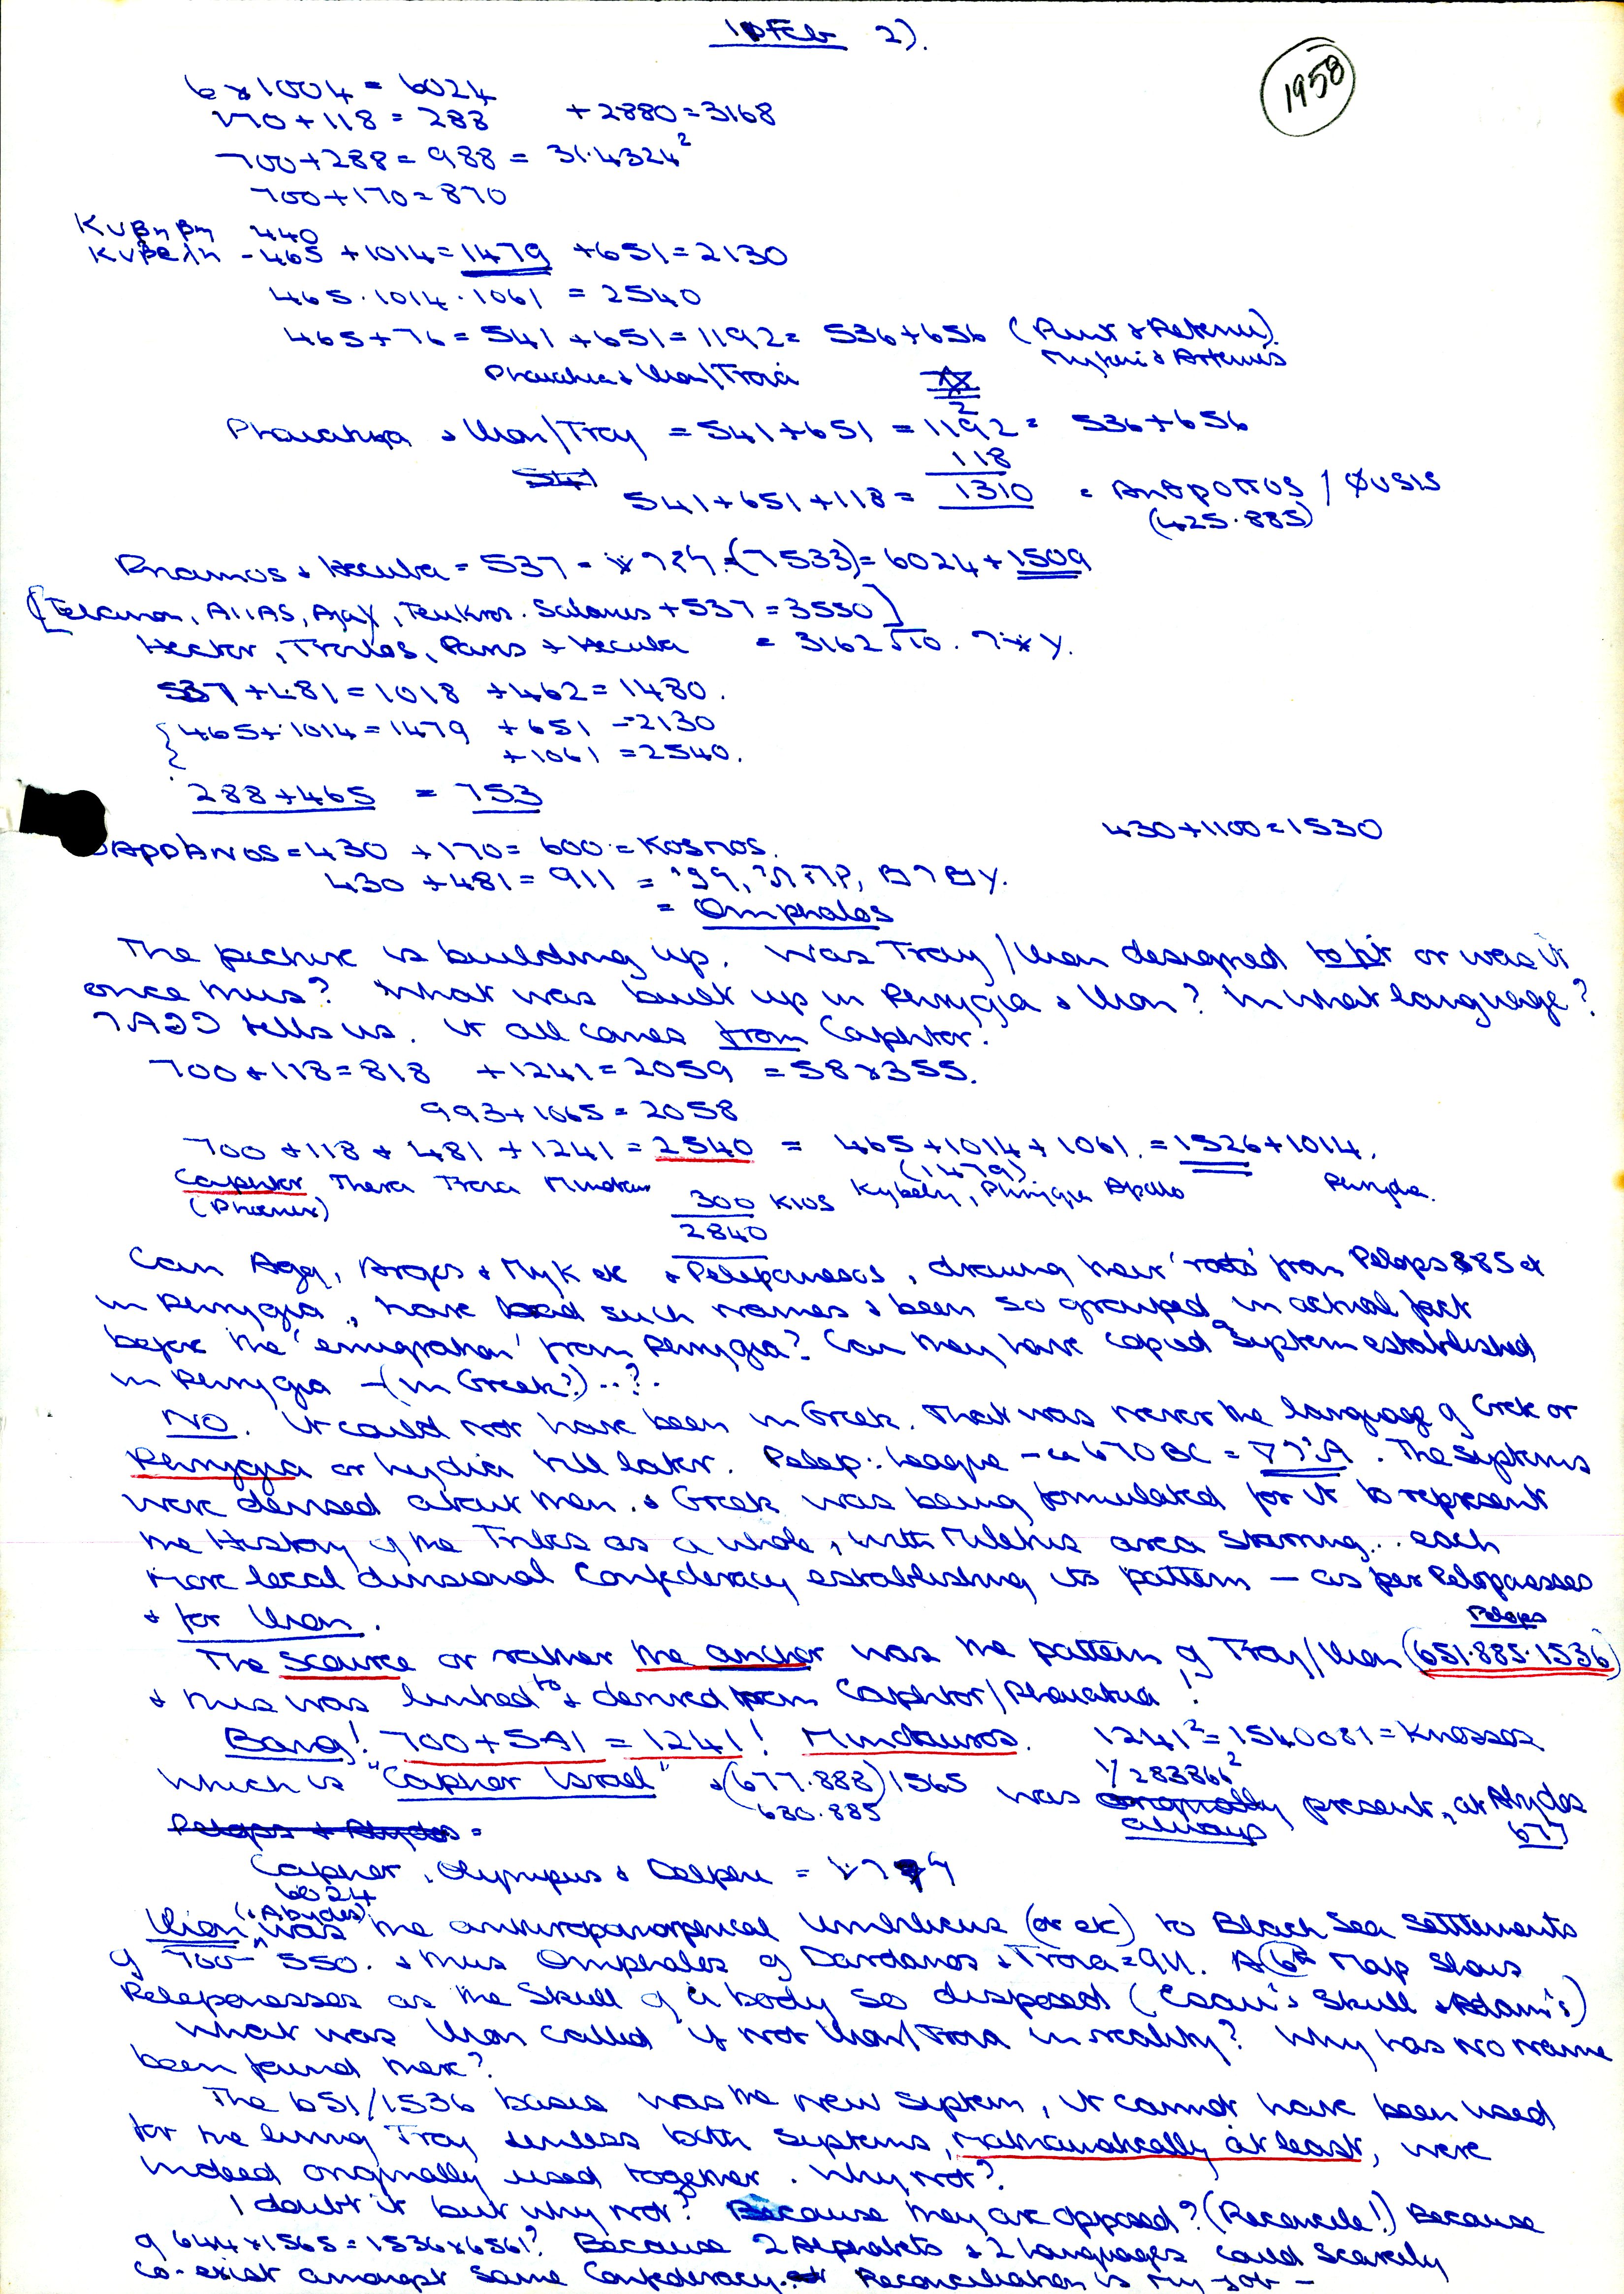 10 Feb 2).
1958
6 x 1004 = 6024
170 + 118 = 288 + 2880 = 3168
700 + 288 = 988 = 31.4324²
700 + 170 = 870
Κυβηβη 440
Κυβελη - 465 + 1014 = 1479 + 651 = 2130
465 . 1014 . 1061 = 2540
465 + 76 = 541 + 651 = 1192 = 536 + 656 (Punt & Retenu)
Ilion/Troia & Artemis
& Ilion/Troy = 541 + 651 = 1192 = 536 + 656
118
541 + 651 + 118 = 1310 = ΑΝΘΡΟΠΟS / ØUSIS
(425.885)
Priamos & Hecuba = 537 = (7533) = 6024 + 1509
[Telamon, AIAS, Ajax, Teukros. Salamis + 537 = 3550]
Hector, Troilos, Paris & Hecuba = 3162 √10.
537 + 481 = 1018 + 462 = 1480.
{465 + 1014 = 1479 + 651 = 2130
+ 1061 = 2540.
288 + 465 = 753
430 + 1100 = 1530
DARDANOS = 430 + 170 = 600 = KOSMOS.
430 + 481 = 911
= Omphalos
The picture is building up. Was Troy/Ilion designed to fit or was it
once thus? What was built up in Phrygia & Ilion? In what language?
tells us. It all comes from Caphtor.
700 + 118 = 818 + 1241 = 2059 = 58 x 355.
993 + 1065 = 2058
700 + 118 + 481 + 1241 = 2540 = 465 + 1014 + 1061. = 1526 + 1014.
Caphtor Thera Troia Minotaur (1479) Kybele, Phrygia Apollo Phrygia.
(Phoenix) 300 Kios
2840
Can Argos & Myk etc & Peloponesos, drawing their 'roots' from Pelops 885 etc
in Phrygia, have had such names & been so grouped in actual fact
before the 'emigration' from Phrygia? Can they have copied a system established
in Phrygia - (in Greek?)..?.
NO. It could not have been in Greek. That was never the language of Crete or
Phrygia or Lydia till later. Pelop: league - ca 670 BC = . The systems
were devised about then. & Greek was being formulated for it to represent
the History of the Tribes as a whole, with Miletus area starring... each
more local divisional Confederacy establishing its pattern - as per Peloponesses
& for Ilion.
Pelops
The source or rather the anchor was the pattern of Troy/Ilion (651.885.1536)
& this was linked to & derived from Caphtor/
Bang! 700 + 541 = 1241! Minotauros. 1241² = 1540081 = Knossos
1/283866²
which is "Capher Israel" & (677.888) 1565 was always present, at Abydos
680.885 677
Capher, Olympus & Delphi =
6024
Ilion (& Abydos) was the anthropomorphical Umbilicus (or etc) to Black Sea Settlements
of 700 - 550. & thus Omphalos of Dardanos & Troia = 911. A Map shows
Peloponesses as the Skull of a body so disposed (Esau's Skull & Adam's)
What was Ilion called if not Ilion/Troia in reality? Why has no name
been found there?
The 651/1536 basis was the new system, it cannot have been used
for the living Troy unless both systems, mathematically at least, were
indeed originally used together. Why not?
I doubt it but why not? Because they are opposed? (Reconcile!) Because
of 644 x 1565 = 1536 x 6561? Because 2 Alphabets & 2 languages could scarcely
co-exist amongst same Confederacy. Reconciliation is my job -